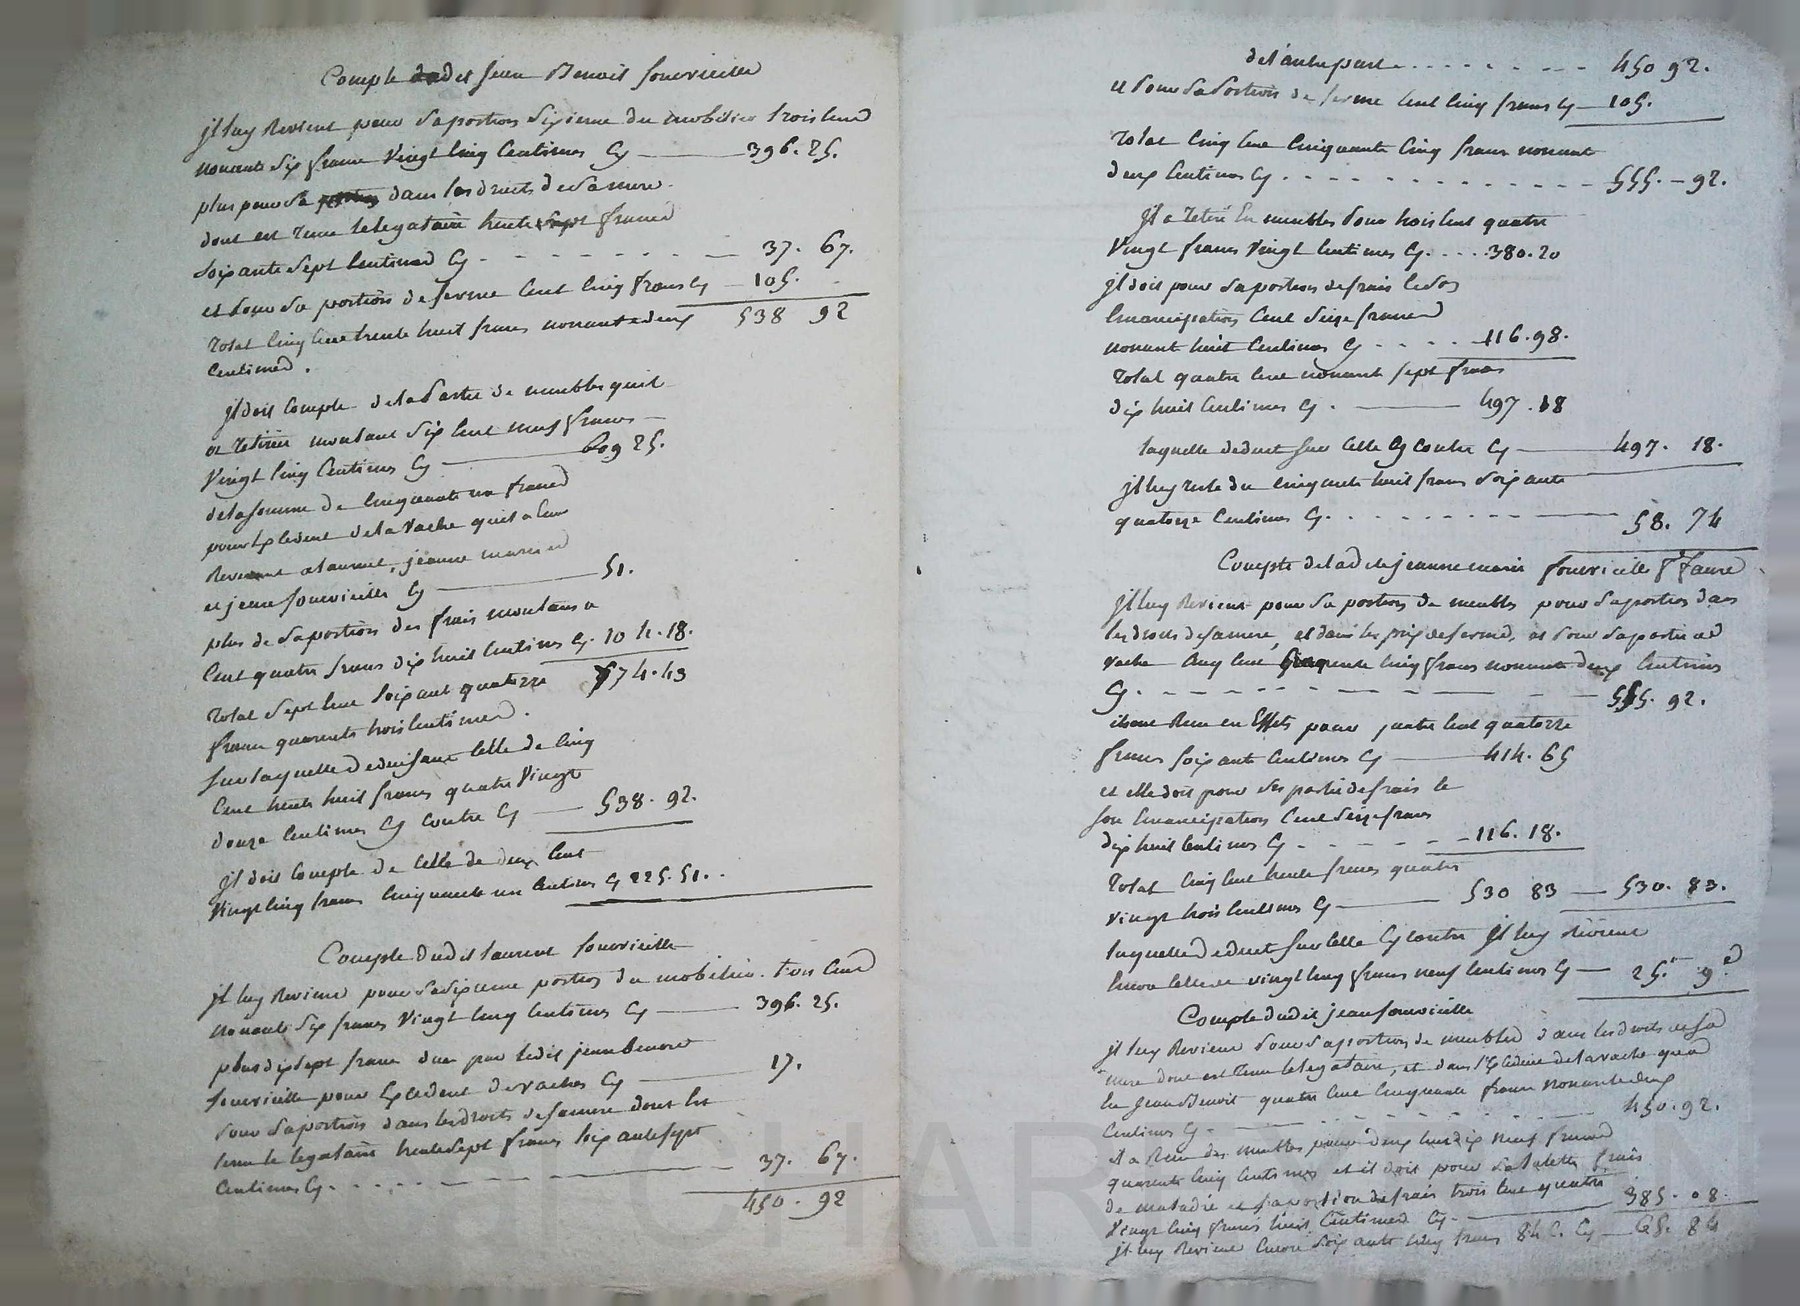 Compte dudit Jean Benoit fourvieille
jl luy Revient pour sa portion sixieme du mobilier trois cend
nonante six franc vingt cinq Centimes Cy 396. 25.
plus pour sa dans les droits de sa mere
dont est Tenu le legataire trente sept francd
soixante sept Centimed Cy 37. 67.
et pour sa portion de ferme Cent Cinq francs Cy 105.
Total Cinq Cent trente huit francs nonante deux 538 92
Centimed.
jl doit Compte de la partie de meubles quil
a retirée montant six Cent neuf francs
Vingt Cinq Centimes Cy 609 25.
de la somme de Cinquante un francd
pour lexcedent de la vache quil a eue
Revenant a laurent, jeanne marie
et jean fourvieille Cy 51.
plus de sa portion des frais montans a
Cent quatre francs dix huit Centimes Cy. 104. 18.
Total sept Cent soixant quatorze 774. 43
franc quarente trois Centimed.
sur laquelle deduisant Celle de Cinq
Cent trente huit francs quatre Vingt
douze Centimes Cy contre Cy 538. 92.
jl doit Compte de Celle de deux Cent
Vingt Cinq francs Cinquante un Centimes Cy 225. 51.
Compte dudit laurent fourvieille
jl luy Revient pour sa sixieme portion du mobilier. trois Cend
nonante six francs Vingt Cinq Centimes Cy 396. 25.
plus dix sept franc due par ledit jean benoit
fourvieille pour Excedent de vaches Cy 17.
pour sa portion dans les droits de sa mere dont est
tenu le legataire trente sept francs soixante sept
Centimes Cy. 37. 67.
450. 92
de l'autre part 450 92.
et pour sa portion de ferme Cent Cinq francs Cy 105.
Total Cinq Cent Cinquante Cinq francs nonant
deux Centimes Cy 555. 92.
jl a retiré En meubles pour trois Cent quatre
Vingt francs Vingt Centimes Cy. 380. 20
jl doit pour sa portion de frais
Emancipation Cent seize francd
nonant huit Centimes Cy 116. 98.
Total quatre Cent nonant sept francs
dix huit Centimes Cy. 497. 18
laquelle deduit sur Celle Cy Contre Cy 497. 18.
jl luy reste du Cinquante huit francs soixante
quatorze Centimes Cy. 58. 74
Compte de ladite jeanne marie fourvieille fe faure
jl luy Revient pour sa portion de meubles pour sa portion dans
les droits de sa mere, et dans le prix de ferme, et pour sa partie de
vache Cinq Cent Cinquante Cinq francs nonante deux Centimes
Cy. 555. 92.
en Effets pour quatre Cent quatorze
francs soixante Centimes Cy 414. 65
et elle doit pour sa partie de frais et
son Emancipation Cent seize francs
dix huit Centimes Cy 116. 18.
Total Cinq Cent trente francs quatre
vingt trois Centimes Cy 530 83 530. 83.
laquelle deduit sur Celle Cy Contre jl luy Revient
Encore Celle de vingt Cinq francs neuf Centimes Cy 25. 9
Compte dudit jean fourvieille
jl luy Revient pour sa portion de meubled dans les droits de sa
mere dont est Tenu le legataire, et dans l'Excedent de la vache qu'a
Eu Jean Benoit quatre Cent Cinquante franc nonante deux
Centimes Cy. 450. 92.
il a Reçu des meubles pour deux Cent dix neuf francd
quarente Cinq Centimes et il doit pour frais
de maladie et sa portion de frais trois Cent quatre
Vingt Cinq francs huit Centimed Cy. 385. 08.
jl luy Revient Encore soixante Cinq francs 84 C. Cy 65. 84